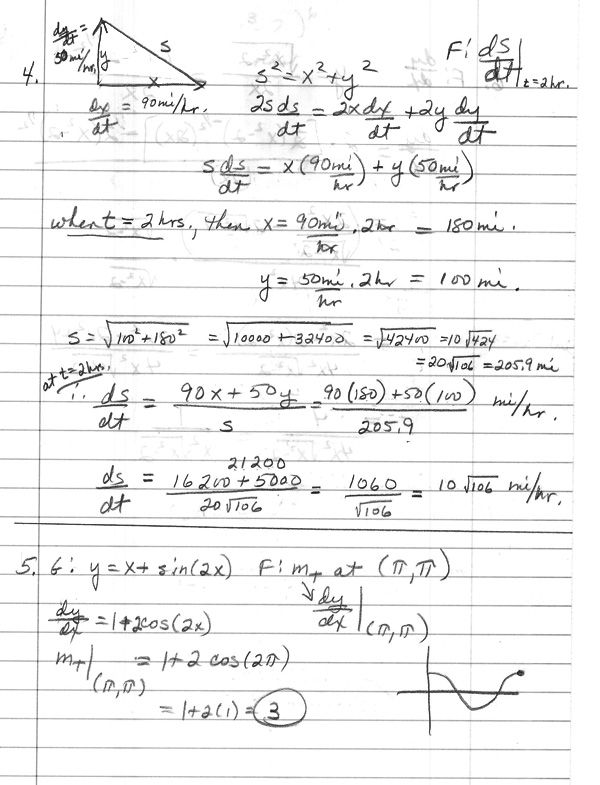 4.
dy/dt = 50 mi/hr.
y
s
x
s² = x² + y²
F: ds/dt |t=2hr.
dx/dt = 90mi/hr.
2s ds/dt = 2x dx/dt + 2y dy/dt
s ds/dt = x(90mi/hr) + y(50mi/hr)
when t = 2hrs, then x = 90mi/hr · 2hr = 180 mi.
y = 50mi/hr · 2hr = 100 mi.
s = √(100² + 180²) = √(10000 + 32400) = √42400 = 10√424
= 20√106 = 205.9 mi
at t=2hrs.
∴ ds/dt = (90x + 50y)/s = (90(180) + 50(100))/205.9 mi/hr.
21200
ds/dt = (16200 + 5000)/(20√106) = 1060/√106 = 10√106 mi/hr.
5. G: y = x + sin(2x) F: mT at (π, π)
↘ dy/dx |(π, π)
dy/dx = 1 + 2cos(2x)
mT |(π, π) = 1 + 2 cos(2π)
= 1 + 2(1) = 3